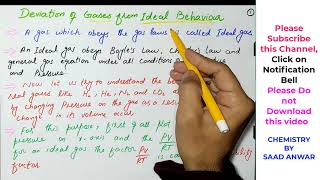 Deviation of Gases from Ideal Behaviour
A gas which obeys the gas laws is called Ideal gas
An Ideal gas obeys Boyle's Law, Law and
general gas equation under all conditions of
and Pressure
Now let us try to understand the
real gases like He, H2, N2 and CO2
by changing Pressure on the gas as a
change in its volume occur
For this purpose, first
pressure on x-axis and the PV/RT
for an ideal gas the factor PV/RT is
factor
Please
Subscribe
this Channel,
Click on
Notification
Bell
Please Do
not
Download
this video
CHEMISTRY
BY
SAAD ANWAR